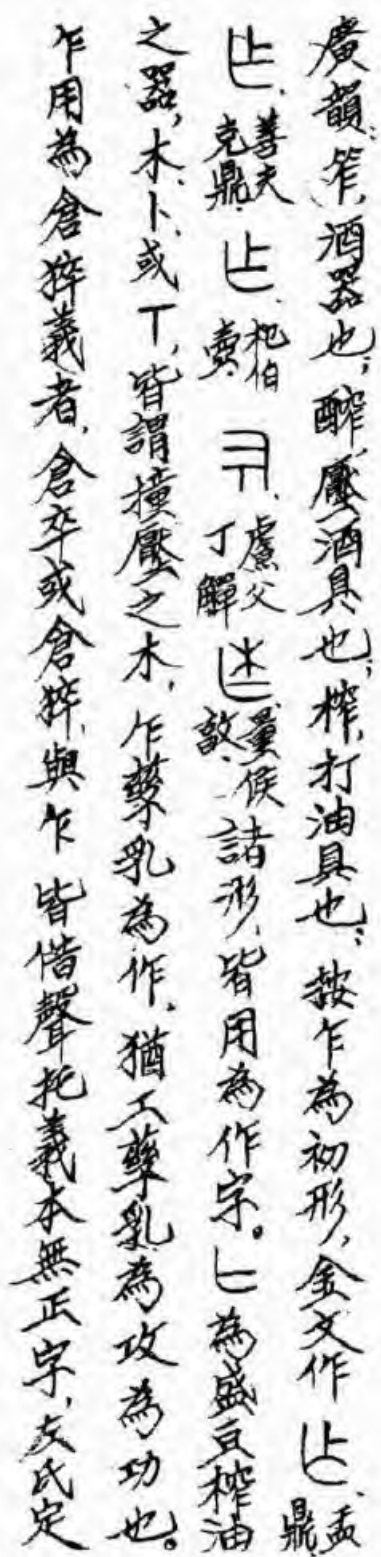 廣韻：笮，酒器也；醡，壓酒具也；榨，打油具也；按乍為初形，金文作、盂鼎
、善夫克鼎、、杞伯壺、、處父丁觶、量侯𣪘、諸形，皆用為作字。匕為盛豆榨油
之器，木、卜、或丅，皆謂撞壓之木，乍孳乳為作，猶工孳乳為攻為功也。
乍用為倉猝義者，倉卒或倉猝，與乍皆借聲托義本無正字，支氏定